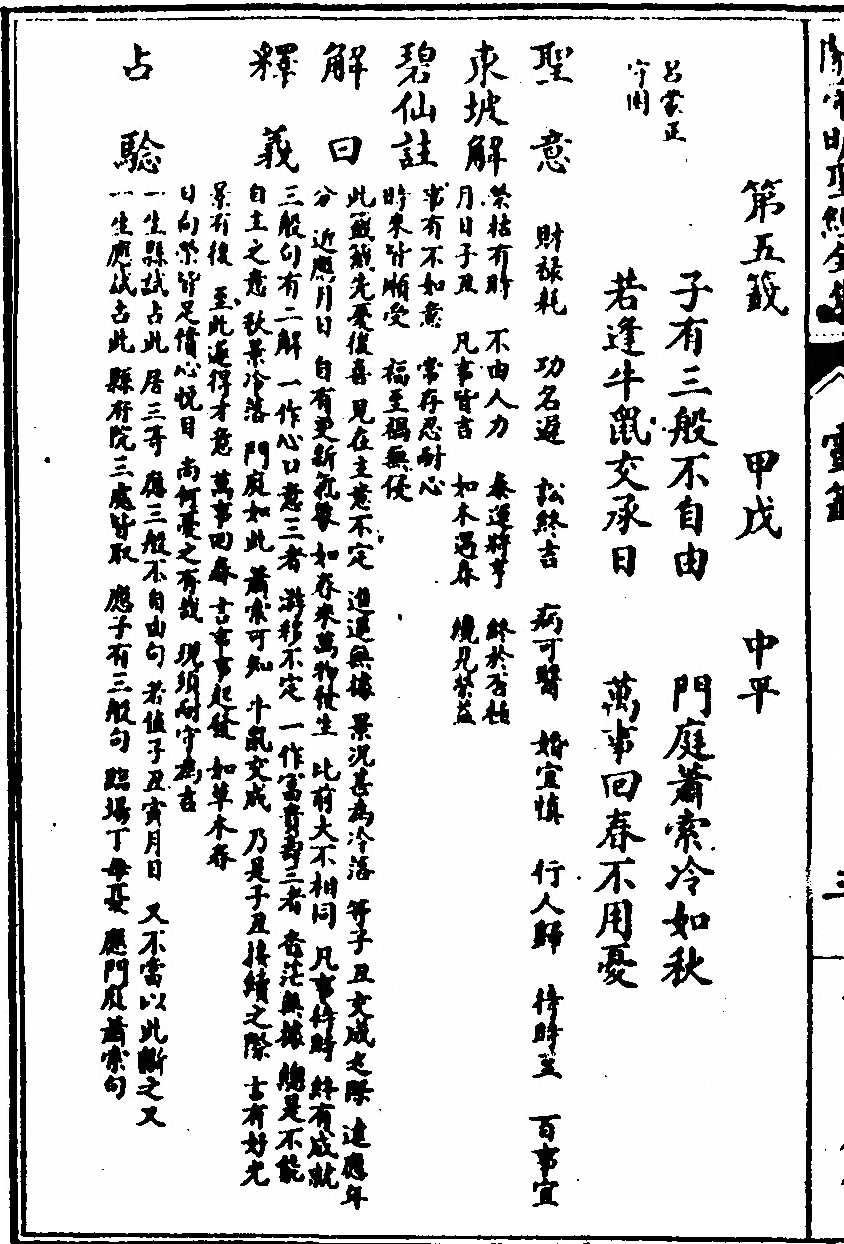 第五籤　甲戊　中平
子有三般不自由　門庭蕭索冷如秋
若逢牛鼠交承日　萬事回春不用憂
呂蒙正
守困
聖意　財祿耗　功名遲　訟終吉　病可醫　婚宜慎　行人歸　待時至　百事宜
東坡解　榮枯有時　不由人力　泰運將亨　終於否極
月日子丑　凡事皆吉　如木遇春　纔見榮益
碧仙註　常有不如意　常存忍耐心
時來皆順受　福至禍無侵
解曰　此籤先憂後喜　見在主意不定　進退無據　景況甚為冷落　等子丑交成之際　遠應年
分　近應月日　自有更新氣象　如春來萬物發生　比前大不相同　凡事待時　終有成就
釋義　三般句有二解　一作心口意三者　游移不定　一作富貴壽三者　杳茫無據　總是不能
自主之意　秋景冷落　門庭如此　蕭索可知　牛鼠交成　乃是子丑接續之際　言有好光
景有後　至此遂得才意　萬事回春　言事事起發　如草木春
日向榮皆足價心悅目　尚何憂之有哉　現須耐守為吉
占驗　一生縣試占此　居三等　應三般不自由句　若值子丑寅月日　又不當以此斷之又
一生應試占此　縣府院三處皆取　應子有三般句　臨場丁母憂　應門庭蕭索句